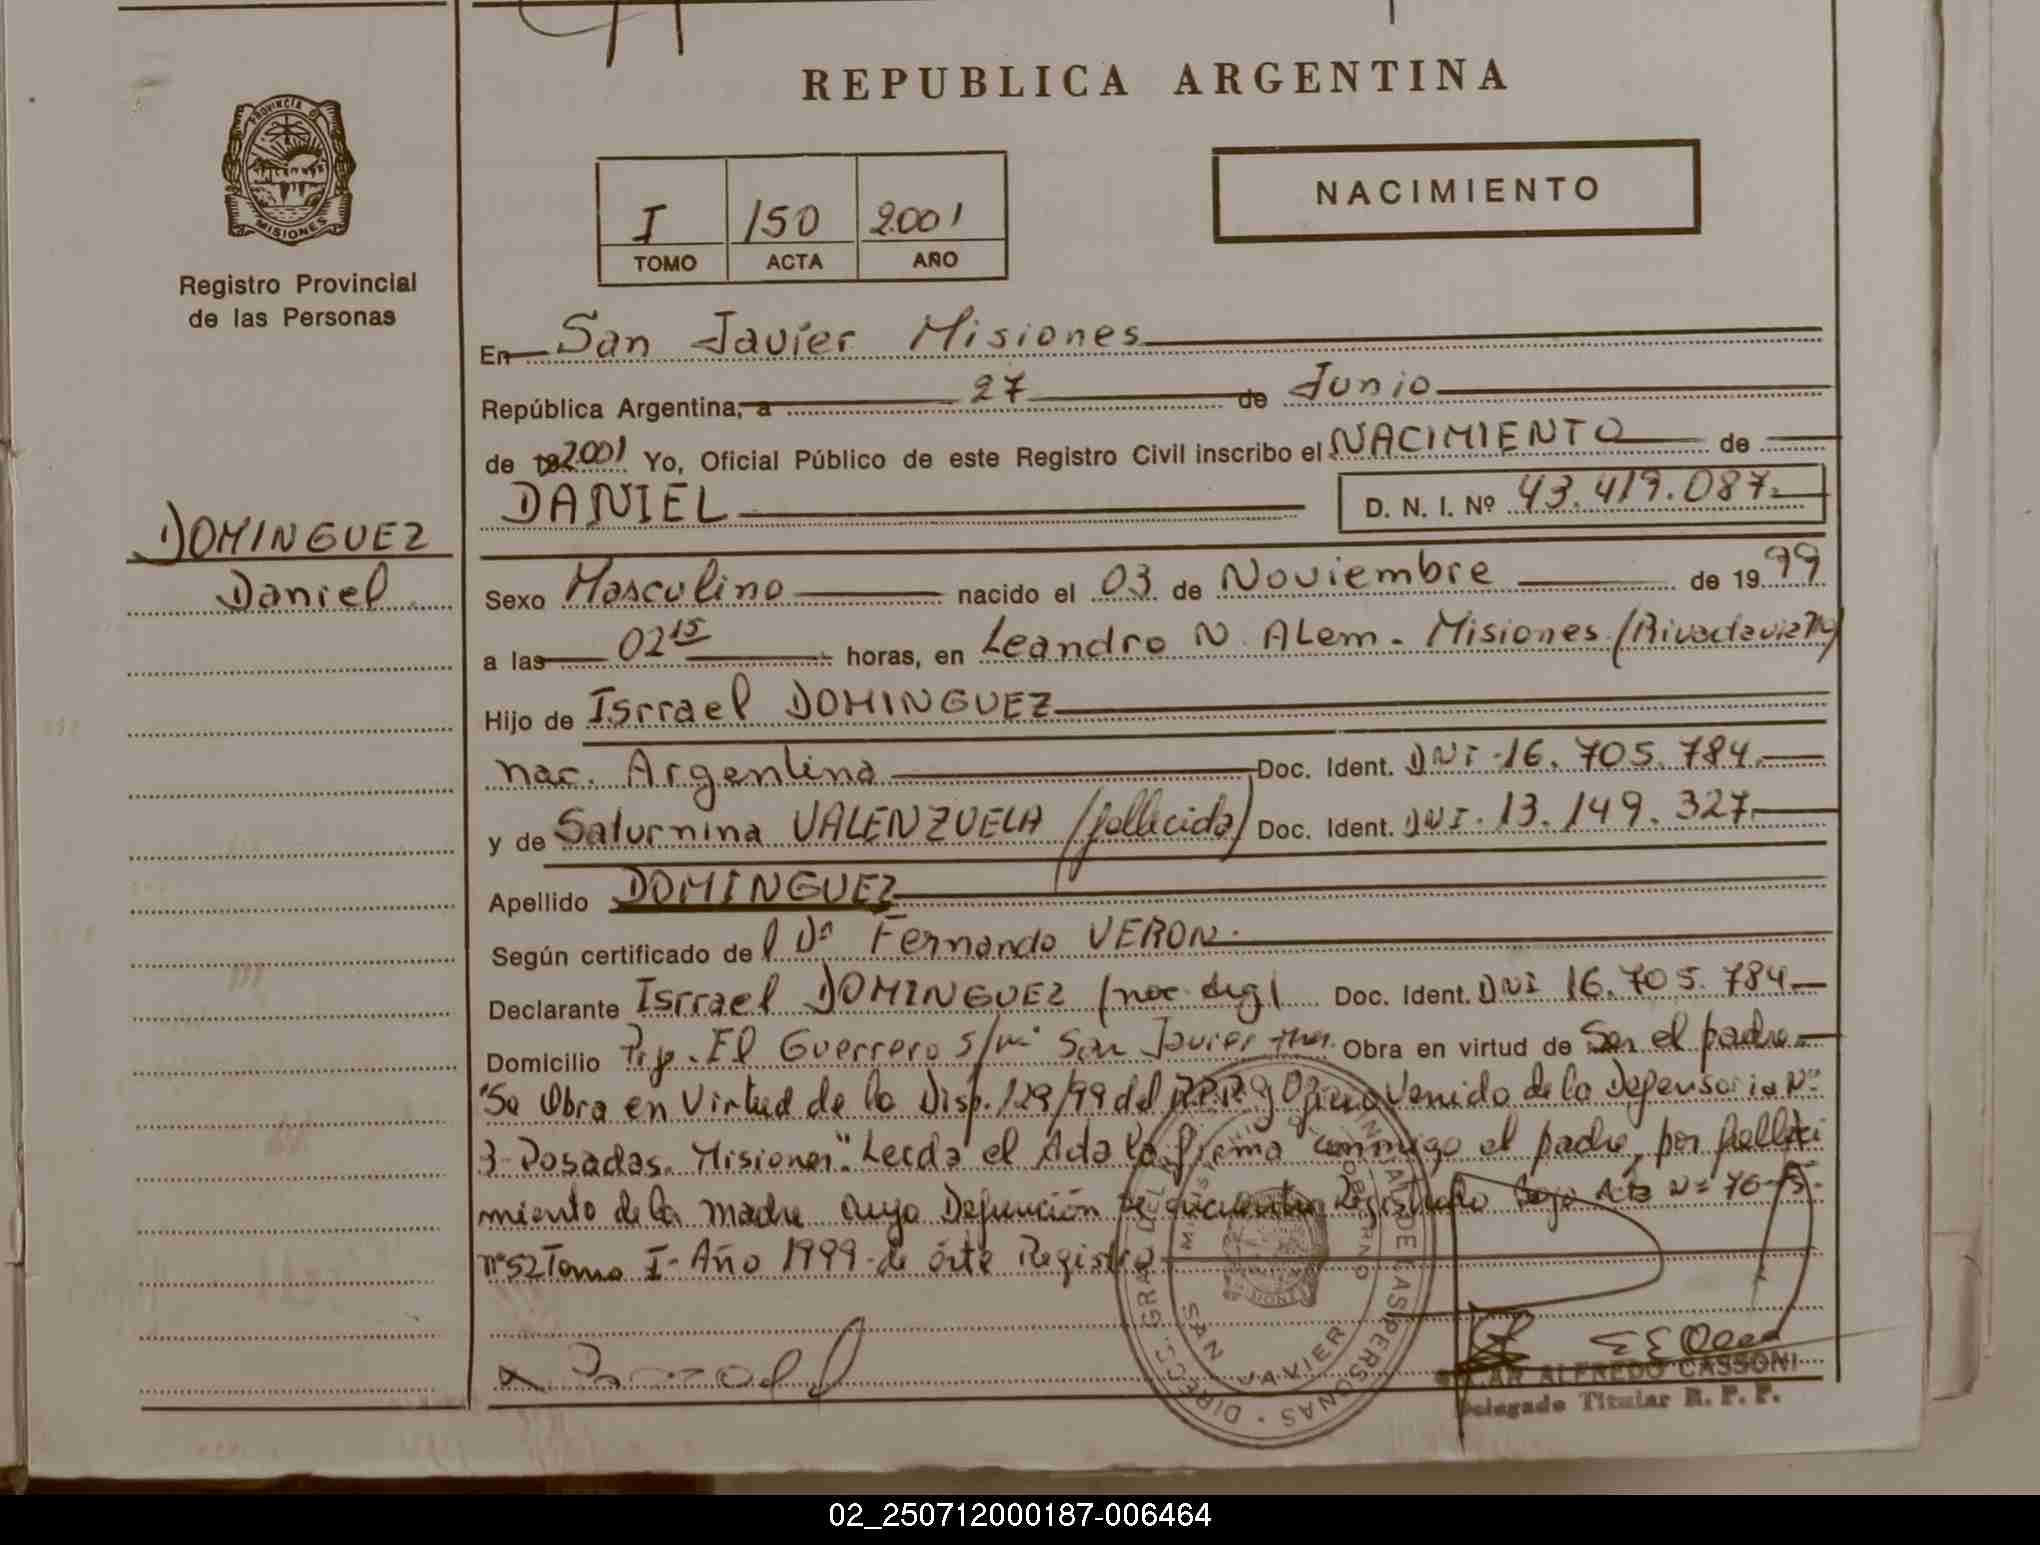 REPUBLICA ARGENTINA
PROVINCIA DE
MISIONES
Registro Provincial
de las Personas
I 150 2001
TOMO ACTA AÑO
NACIMIENTO
En San Javier Misiones
República Argentina, a 27 de Junio
de 2001 Yo, Oficial Público de este Registro Civil inscribo el NACIMIENTO de
DANIEL D. N. I. Nº 43.419.087.
DOMINGUEZ
Daniel
Sexo Masculino nacido el 03 de Noviembre de 1999
a las 02 15 horas, en Leandro N. ALem. Misiones (Rivadavia
Hijo de Isrrael DOMINGUEZ
nac. Argentina Doc. Ident. DNI 16.705.784
y de Saturnina VALENZUELA (fallecida) Doc. Ident. DNI. 13.149.327
Apellido DOMINGUEZ
Según certificado del Dr Fernando VERON.
Declarante Isrrael DOMINGUEZ Doc. Ident. DNI 16.705.784
Domicilio El Guerrero s/nº San Javier Obra en virtud de Ser el padre
"Se Obra en Virtud de la Disp. 129/99 del R.P.P. y Oficio Venido de la Defensoria Nº
3-Posadas. Misiones". Leida el Acta la firma conmigo el padre, por falleci
miento de la madre cuya Defunción se encuentra Registrada bajo Acta Nº
Nº 52 Tomo I- Año 1999 de éste Registro
SAN JAVIER
ALFREDO CASSONI
Delegado Titular R. P. P.
02_250712000187-006464